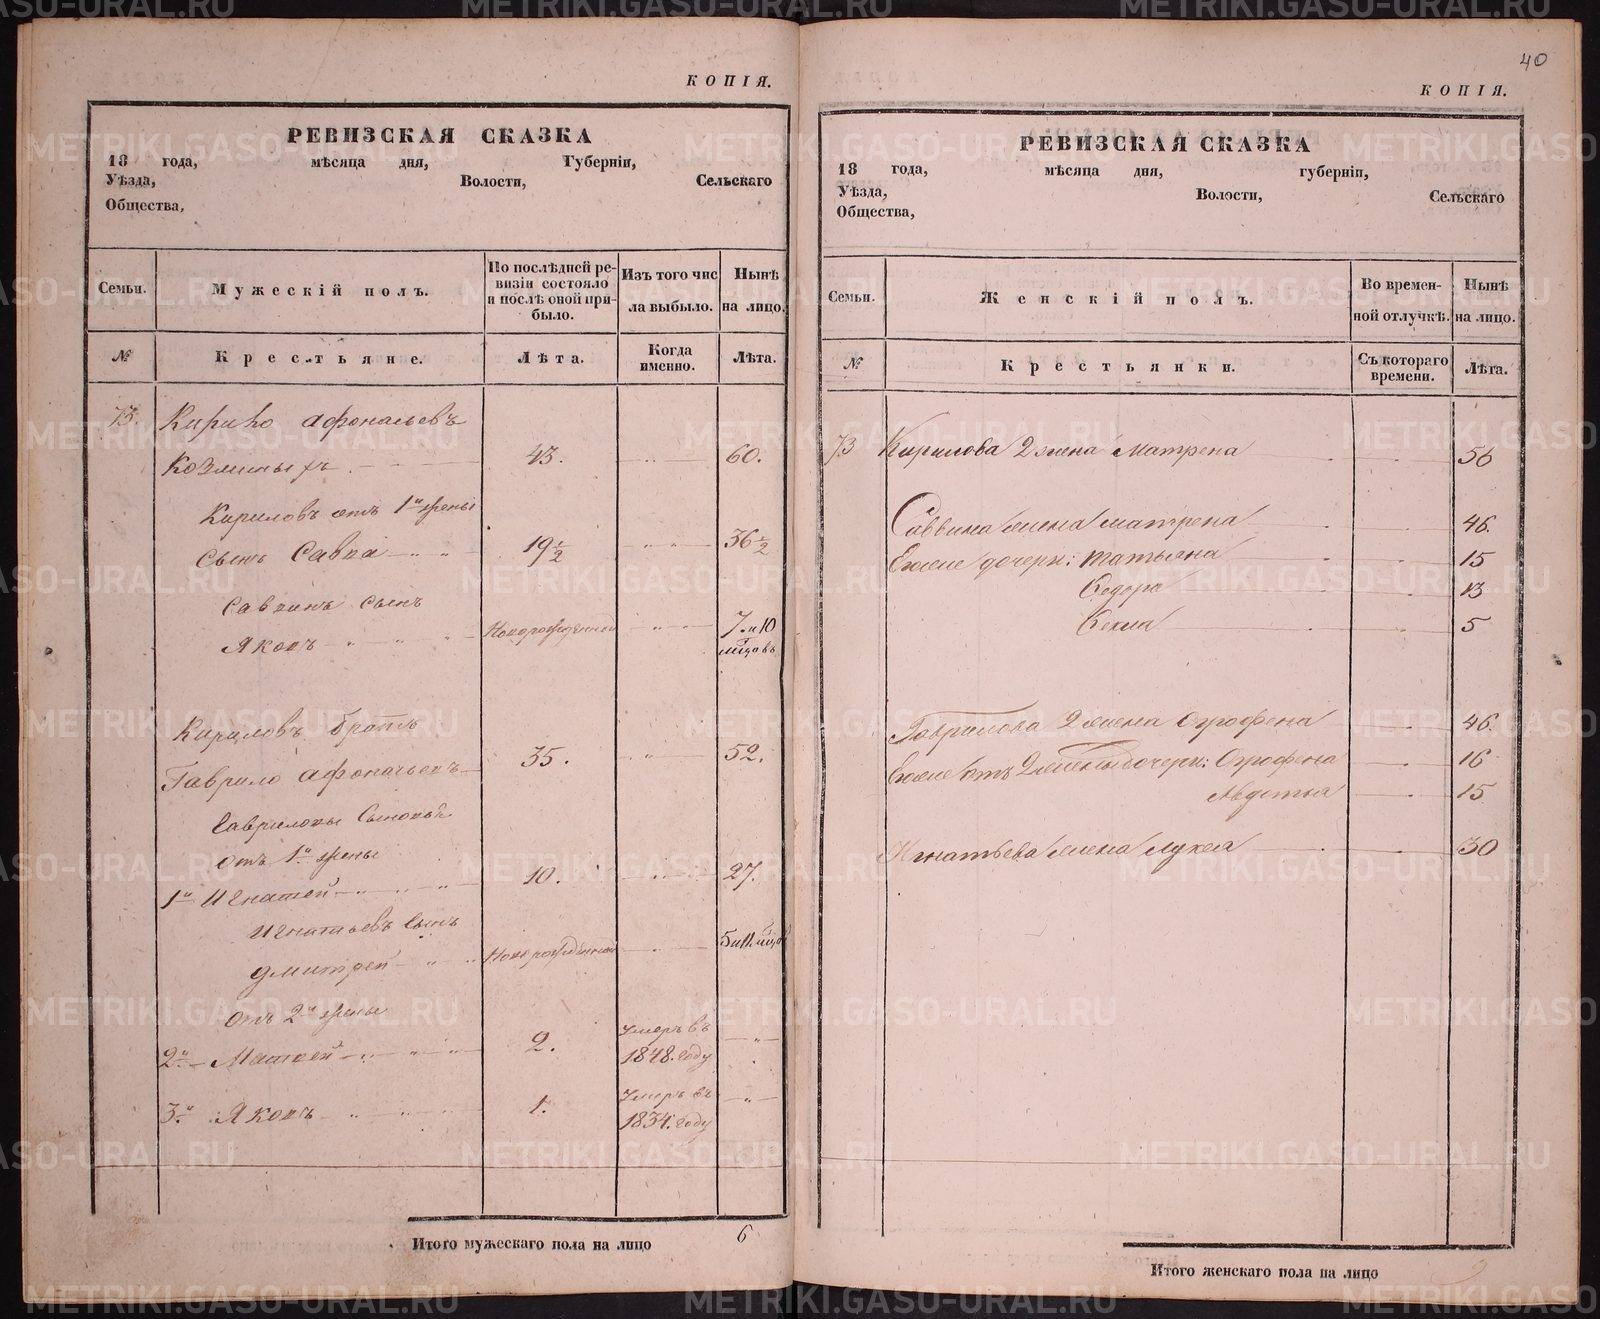 КОПІЯ.
РЕВИЗСКАЯ СКАЗКА
18 года, мѣсяца дня, Губерніи,
Уѣзда, Волости, Сельскаго
Общества,
Семьи. Мужескій полъ. По послѣдней ревизіи состояло и послѣ оной прибыло. Изъ того числа выбыло. Нынѣ на лицо.
№ Крестьяне. Лѣта. Когда именно. Лѣта.
73. Кирило Афонасьевъ
Козминыхъ 43. 60.
Кириловъ отъ 1й жены
сынъ Савва 19½ 36½
Саввинъ сынъ
Яковъ Новорожденной 7 и 10 мѣцовъ
Кириловъ братъ
Гаврило Афонасьевъ 35. 52.
Гавриловы Сыновья
отъ 1й жены
1й Игнатей 10. 27.
Игнатьевъ Сынъ
Дмитрей Новорожденной 5 и 11 мѣцов
отъ 2й жены
2й Матвей 2. Умеръ въ 1848. году
3й Яковъ 1. Умеръ въ 1834. году
Итого мужескаго пола на лицо 6
40
КОПІЯ.
РЕВИЗСКАЯ СКАЗКА
18 года, мѣсяца дня, губерніи,
Уѣзда, Волости, Сельскаго
Общества,
Семьи. Женскій полъ. Во временной отлучкѣ. Нынѣ на лицо.
№ Крестьянки. Съ котораго времени. Лѣта.
73 Кирилова 2 жена Матрена 56
Саввина жена Матрена 46.
Ихние дочери: Татьяна 15
Федора 13
Фекла 5
Гаврилова 2 жена Огрофена 46.
Ихние отъ 2 жены дочери: Огрофена 16
Авдотья 15
Игнатьева жена Лукея 30
Итого женскаго пола на лицо 9
METRIKI.GASO-URAL.RU